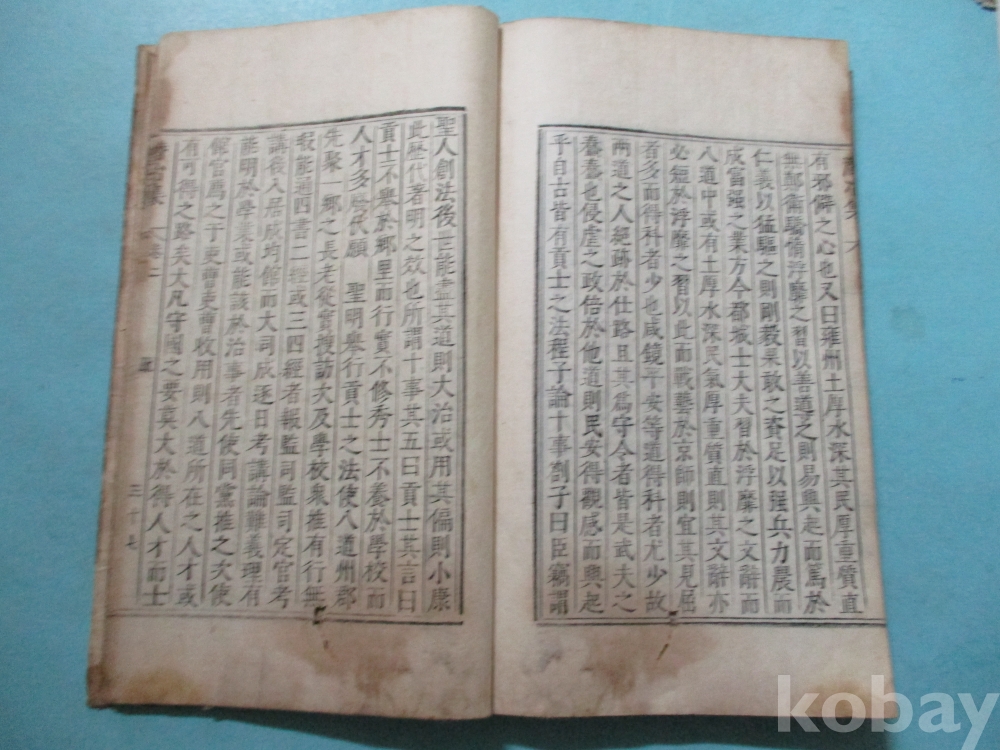 有邪僻之心也又曰雍州土厚水深其民厚重質直
無鄭衛驕惰浮靡之習以善導之則易興起而篤於
仁義以猛驅之則剛毅果敢之資足以强兵力農而
成富强之業方今都城士大夫習於浮靡之文辭而
八道中或有土厚水深民氣厚重質直則其文辭亦
必短於浮靡之習以此而戰藝於京師則宜其見屈
者多而得科者少也咸鏡平安等道得科者尤少故
兩道之人絕跡於仕路且其爲守令者皆是武夫之
蠢蠢也侵虐之政倍於他道則民安得觀感而興起
乎自古皆有貢士之法程子論十事劄子曰臣竊謂
聖人創法後世能盡其道則大治或用其偏則小康
此歷代著明之效也所謂十事其五曰貢士其言曰
貢士不舉於鄕里而行實不修秀士不養於學校而
人才多廢伏願 聖明興行貢士之法使八道州郡
先聚一鄕之長老從實搜訪次及學校衆推有行無
瑕能通四書二經或三四經者報監司監司定官考
講後入居成均館而大司成逐日考講論難義理有
能明於學業或能該於治事者先使同黨推之次使
館官薦之于吏曹吏曹收用則八道所在之人才或
有可得之路矣大凡守國之要莫大於得人才而士
卷二
三十七
kobay